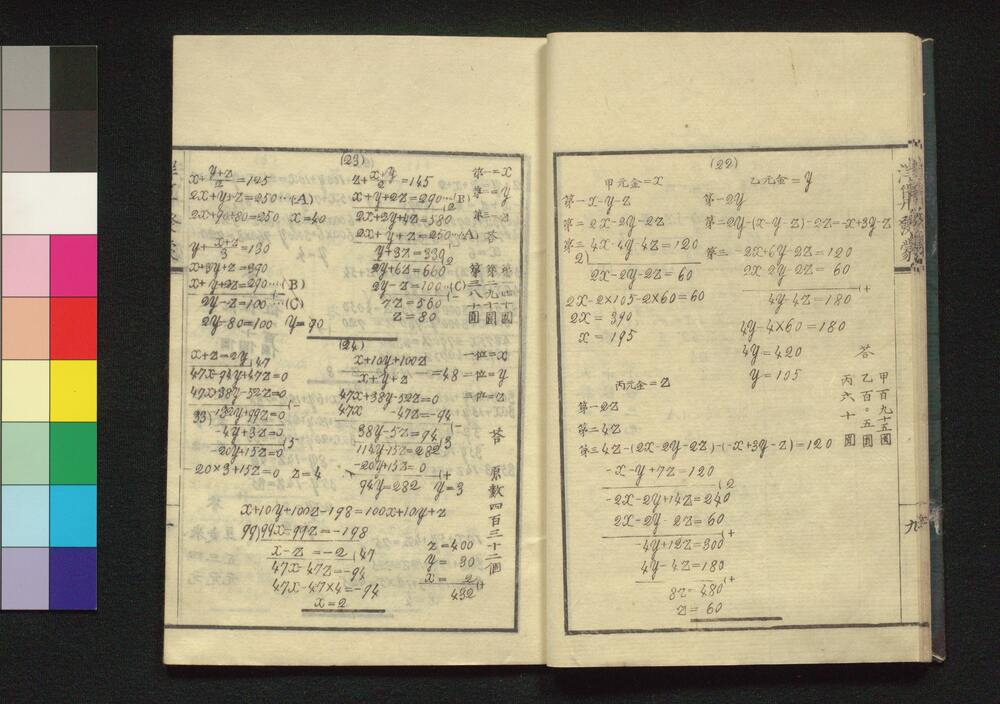 (22)
甲元金=x
第一x-y-z
第二2x-2y-2z
第三4x-4y-4z=120
2)
2x-2y-2z=60
2x-2×105-2×60=60
2x=390
x=195
乙元金=y
第一2y
第二2y-(x-y-z)-2z=-x+3y-z
第三 -2x+6y-2z=120
2x-2y-2z=60
(+
4y-4z=180
4y-4×60=180
4y=420
y=105
答
甲百九十五圓
乙百〇五圓
丙六十圓
丙元金=z
第一2z
第二4z
第三4z-(2x-2y-2z)-(-x+3y-z)=120
-x-y+7z=120
(2
-2x-2y+14z=240
2x-2y-2z=60
(+
-4y+12z=300
4y-4z=180
(+
8z=480
z=60
九
(23)
第一=x
第二=y
第三=z
答
第一四十圓
第二九十圓
第三八十圓
x+y+z/2=125
2x+y+z=250…(A)
2x+90+80=250 x=40
y+x+z/3=130
x+3y+z=390
x+y+2z=290…(B)
(-
2y-z=100…(C)
2y-80=100 y=90
z+x+y/2=145
x+y+2z=290…(B)
(2
2x+2y+4z=580
2x+y+z=250…(A)
(-
y+3z=330
(2
2y+6z=660
2y-z=100…(C)
(-
7z=560
z=80
(24)
x+z=2y
(47
47x-94y+47z=0
47x+38y-52z=0
(-
33) -132y+99z=0
-4y+3z=0
(5
-20y+15z=0
-20×3+15z=0 z=4
x+10y+100z/x+y+z=48
一位=x
二位=y
三位=z
47x+38y-52z=0
47x -47z=-94
(-
38y-5z=94
(3
114y-15z=282
-20y+15z=0
(+
94y=282 y=3
x+10y+100z-198=100x+10y+z
99)99x-99z=-198
x-z=-2
(47
47x-47z=-94
47x-47×4=-94
x=2
z=400
y= 30
x= 2
(+
432
答 原數四百三十二個